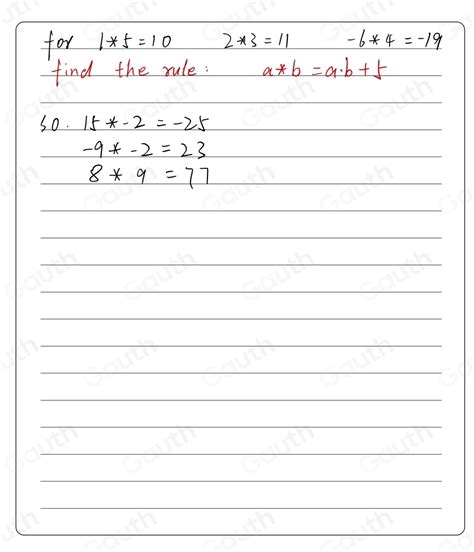 for 1*5=10 2*3=11 -6*4=-19
find the rule: a*b=a·b+5
SO. 15*-2=-25
-9*-2=23
8*9=77
Gauth